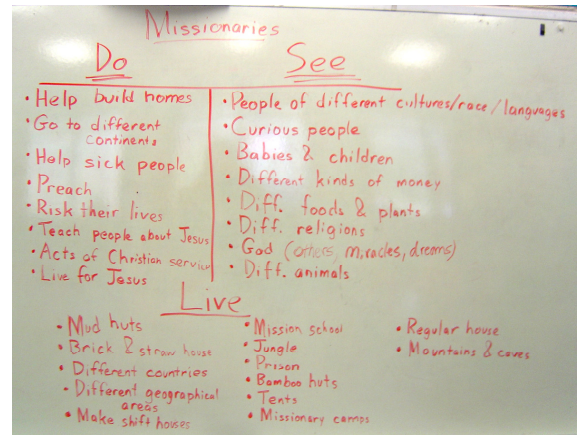 Missionaries
Do
• Help build homes
• Go to different
continents
• Help sick people
• Preach
• Risk their lives
• Teach people about Jesus
• Acts of Christian service
• Live for Jesus
See
• People of different cultures/race/languages
• Curious people
• Babies & children
• Different kinds of money
• Diff. foods & plants
• Diff. religions
• God (others, miracles, dreams)
• Diff. animals
Live
• Mud huts
• Brick & straw house
• Different countries
• Different geographical
areas
• Make shift houses
• Mission school
• Jungle
• Prison
• Bamboo huts
• Tents
• Missionary camps
• Regular house
• Mountains & caves